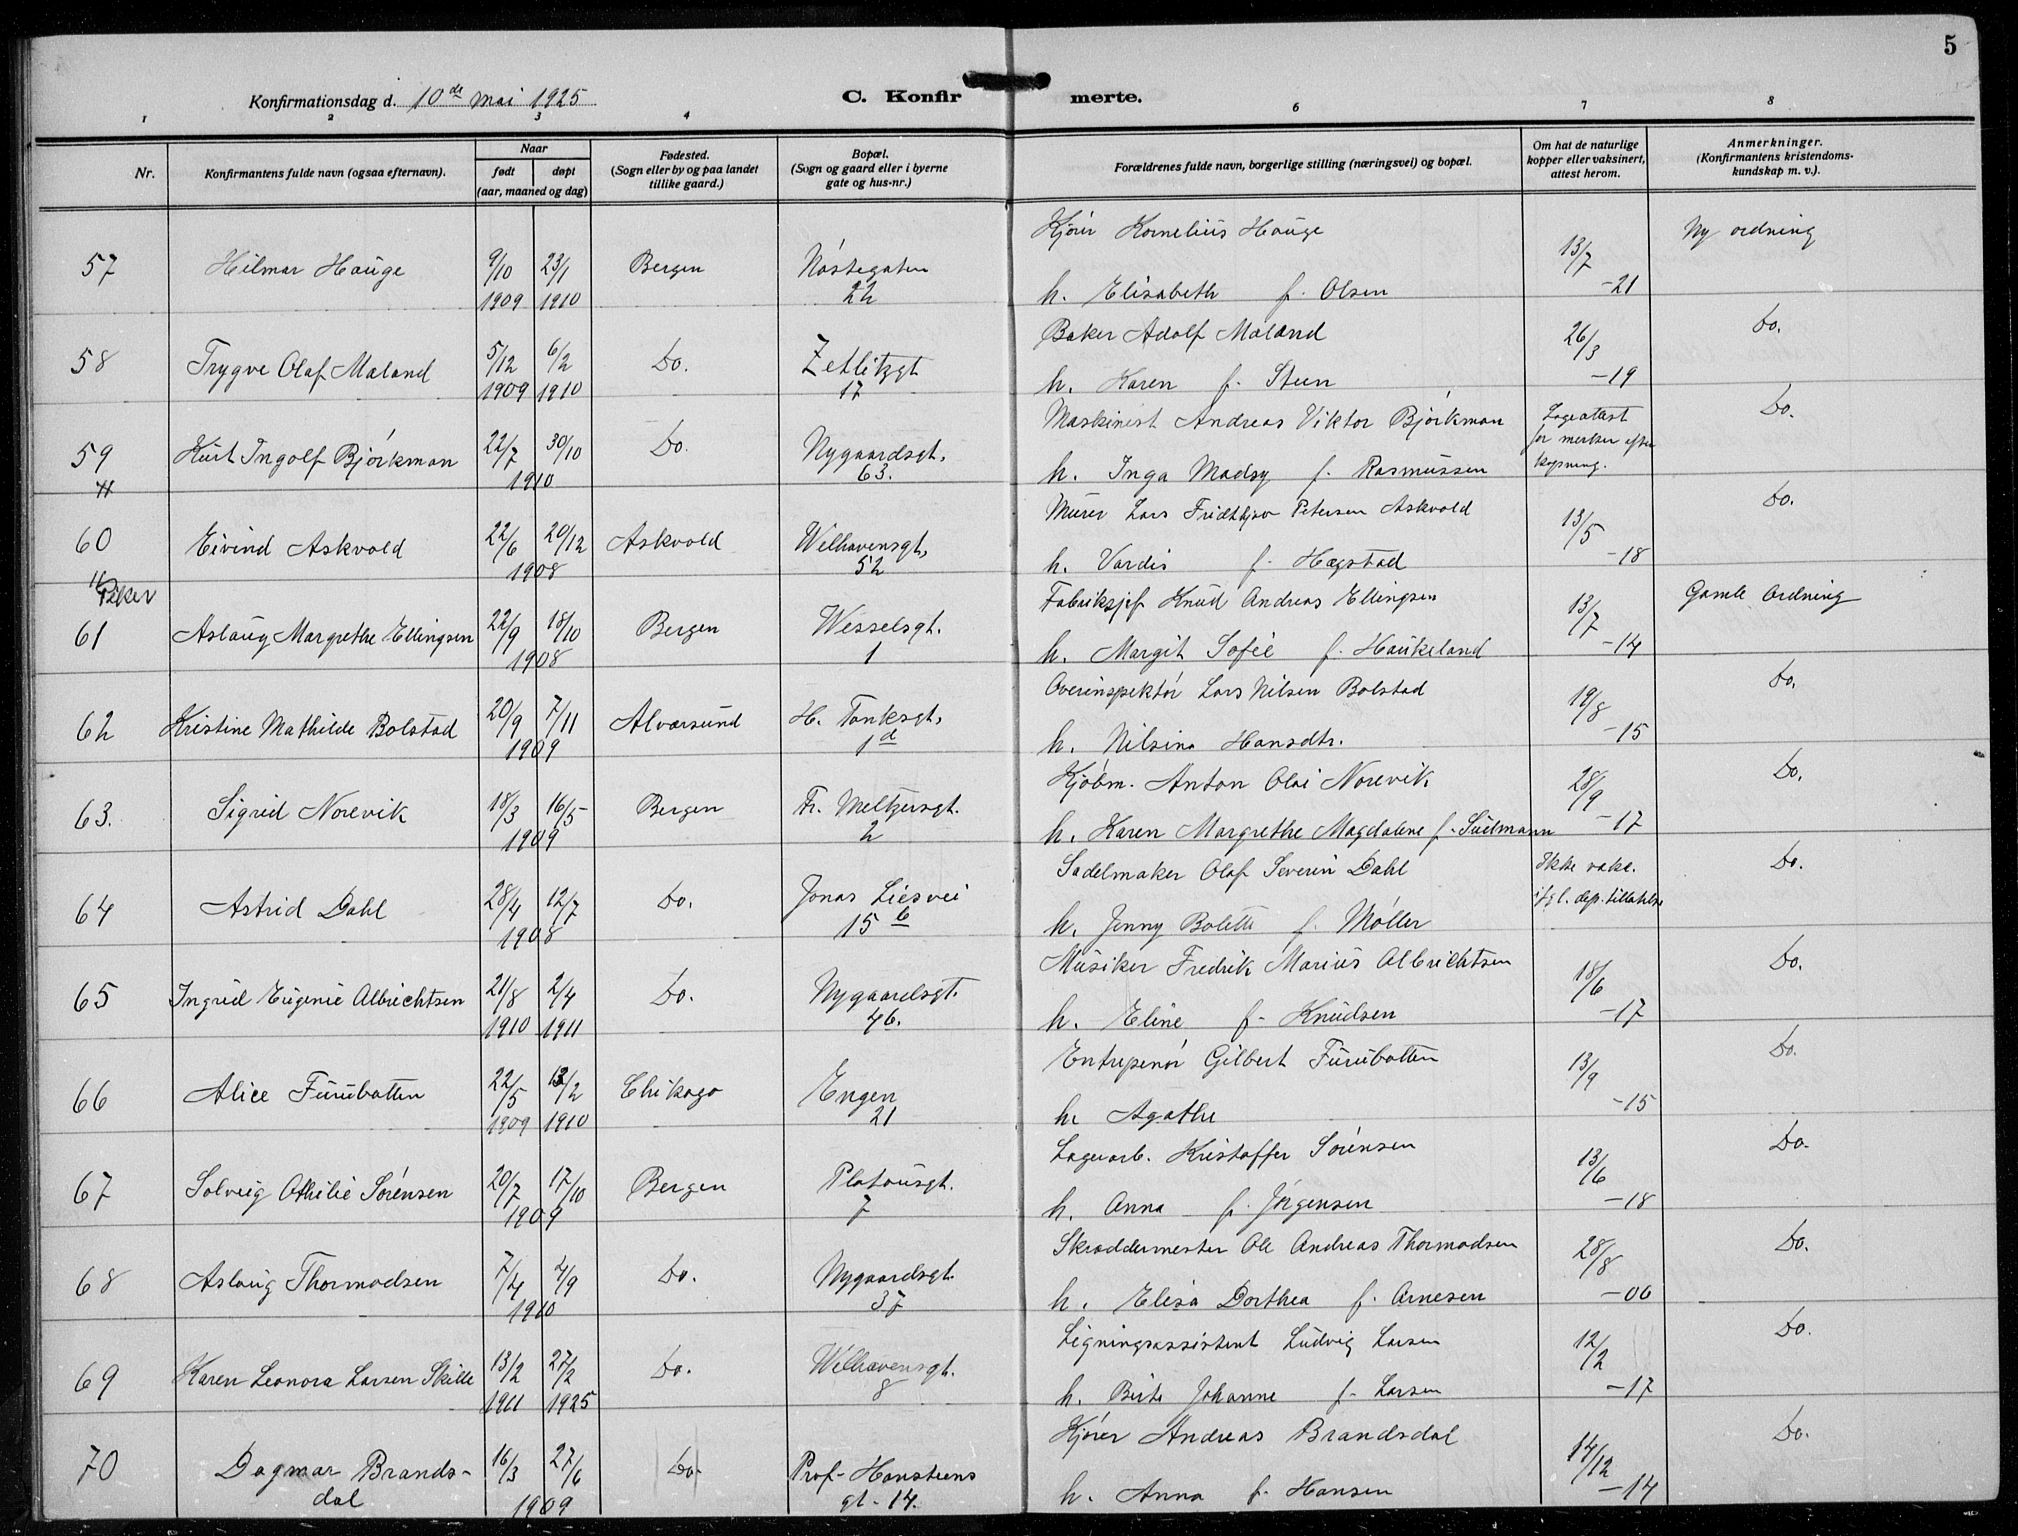 5
Konfirmationsdag d. 10de mai 1925
C. Konfir merte.
1 2 3 4 6 7 8
Nr.
Konfirmantens fulde navn (ogsaa efternavn).
Naar
født døpt
(aar, maaned og dag)
Fødested.
(Sogn eller by og paa landet
tillike gaard.)
Bopæl.
(Sogn og gaard eller i byerne
gate og hus-nr.)
Forældrenes fulde navn, borgerlige stilling (næringsvei) og bopæl.
Om hat de naturlige
kopper eller vaksinert,
attest herom.
Anmerkninger.
(Konfirmantens kristendoms-
kundskap m. v.).
Kjører Kornelius Hauge Ny ordning
57 Hilmar Hauge 9/10 23/1 Bergen Nøstegaten 13/7
1909 1910 22 h. Elisabeth f. Olsen -21
Baker Adolf Maland do.
58 Trygve Olaf Maland 5/12 6/2 Do. Zetlitzgt 26/3
1909 1910 17 h. Karen f. Steen -19
Maskinist Andreas Viktor Bjørkman Lægeattest Do.
59 Kurt Ingolf Bjørkman 22/7 30/10 Do. Nygaardsgt. for merker efter
1910 63. h. Inga Madsy f. Rasmussen kopning.
Murer Lars Fridthjov Petersen Askvold do.
60 Eivind Askvold 22/6 20/12 Askvold Welhavensgt. 13/5
1908 52 h. Vardis f. Hægstad -18
Piker
Fabriksjef Knud Andreas Ellingsen Gamle Ordning
61 Aslaug Margrethe Ellingsen 22/9 18/10 Bergen Wesselsgt. 13/7
1908 1 h. Margit Sofie f. Haukeland -14
Overinspektør Lars Nilsen Bolstad do.
62 Kristine Mathilde Bolstad 20/9 7/11 Alversund H. Tanksgt. 19/8
1909 1d h. Nilsina Hansdtr. -15
Kjøbm. Anton Olai Norevik Do.
63. Sigrid Norevik 18/3 16/5 Bergen Fr. Meltzersgt. 28/9
1909 2 h. Karen Margrethe Magdalene f. Suhmann -17
Sadelmaker Olaf Severin Dahl Ikke vaks. Do.
64 Astrid Dahl 28/4 12/7 Do. Jonas Liesvei ifgl. dep. tillatelse
1908 15b h. Jenny Bolette f. Møller
Musiker Fredrik Marius Albrichtsen Do.
65 Ingrid Eugenie Albrichtsen 21/8 2/4 Do. Nygaardsgt. 18/6
1910 1911 46. h. Eline f. Knudsen -17
Entrepenør Gilbert Furubotten Do.
66 Alice Furubotten 22/5 13/2 Chikago Engen 13/9
1909 1910 21 h. Agathe -15
Lagerarb. Kristoffer Sørensen Do.
67 Solveig Othilie Sørensen 20/7 17/10 Bergen Platousgt. 13/6
1909 7 h. Anna f. Jørgensen -18
Skræddermester Ole Andreas Thormodsen Do.
68 Aslaug Thormodsen 7/4 4/9 Do. Nygaardsgt. 28/8
1910 37 h. Elisa Dorthea f. Arnesen -06
Ligningsassistent Ludvig Larsen Do.
69 Karen Leonora Larsen Skille 13/2 27/2 Do. Welhavensgt. 12/2
1911 1925 8 h. Berte Johanne f. Larsen -17
Kjører Andreas Brandsdal Do.
70 Dagmar Brands- 16/3 27/6 Do. Prof. Hansteens 14/12
dal 1909 gt. 14. h. Anna f. Hansen -14